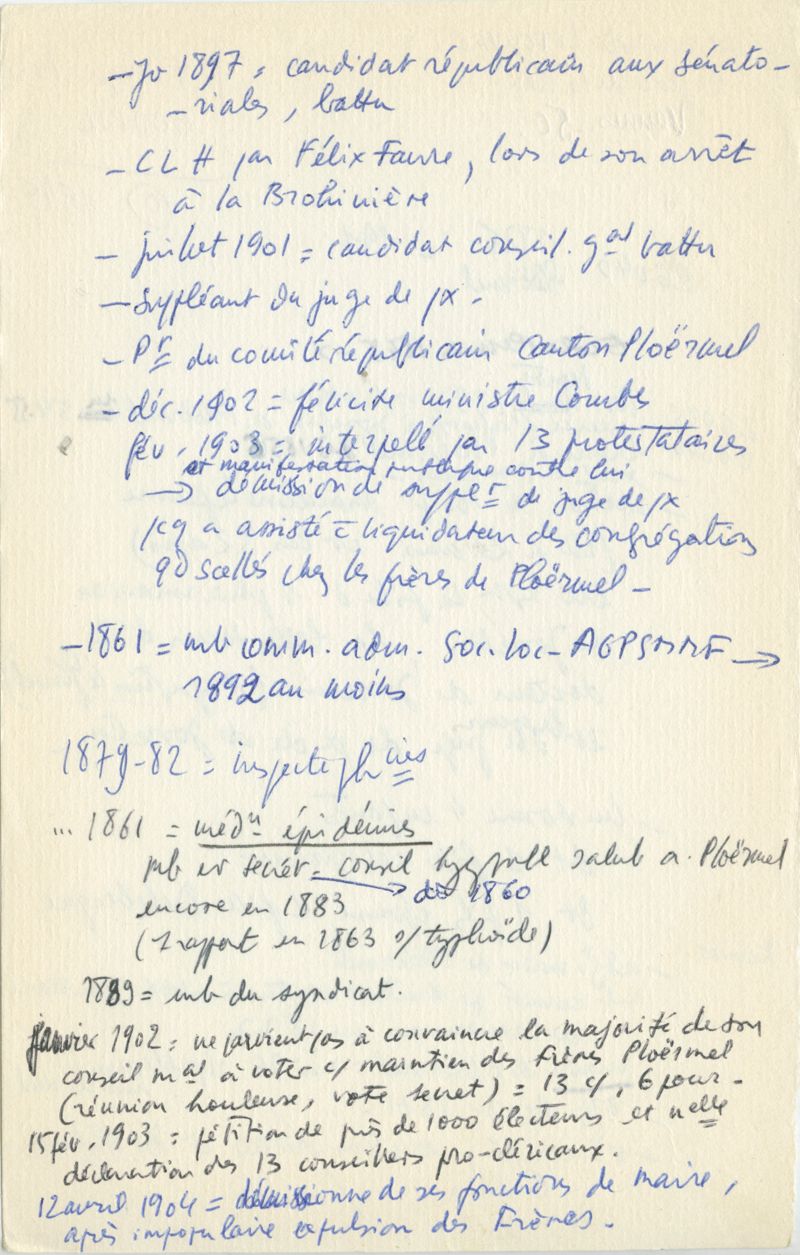 - Jr 1897 = candidat républicain aux sénato-
- riales, battu
- CLH par Félix Faure, lors de son arrêt
à la Brohinière
- juillet 1901 = candidat conseil. gal battu
- suppléant du juge de px.
- Pr du comité républicain Canton Ploërmel
- déc. 1902 = félicite ministre Combes
fév. 1903 = interpellé par 13 protestataires
et manifestation publique contre lui
→ démission de supplt de juge de px
pcq a assisté = liquidateur des congrégations
qd scellés chez les frères de Ploërmel -
- 1861 = mb comm. adm. Soc. loc - AGPSMMF →
1892 au moins
1879-82 = inspecte phcies
... 1861 = médn épidémies
mb et secrét. conseil hyg publ salub a. Ploërmel
→ dès 1860
encore en 1883
(1 rapport en 1863 s/ typhoïde)
1889 = mb du syndicat.
janvier 1902 = ne parvient pas à convaincre la majorité de son
conseil mal à voter c/ maintien des Frères Ploërmel
(réunion houleuse, vote secret) = 13 c/, 6 pour -
15 fév. 1903 = pétition de près de 1000 électeurs et nelle
déclaration des 13 conseillers pro-cléricaux.
12 avril 1904 = démissionne de ses fonctions de maire,
après impopulaire expulsion des Frères.